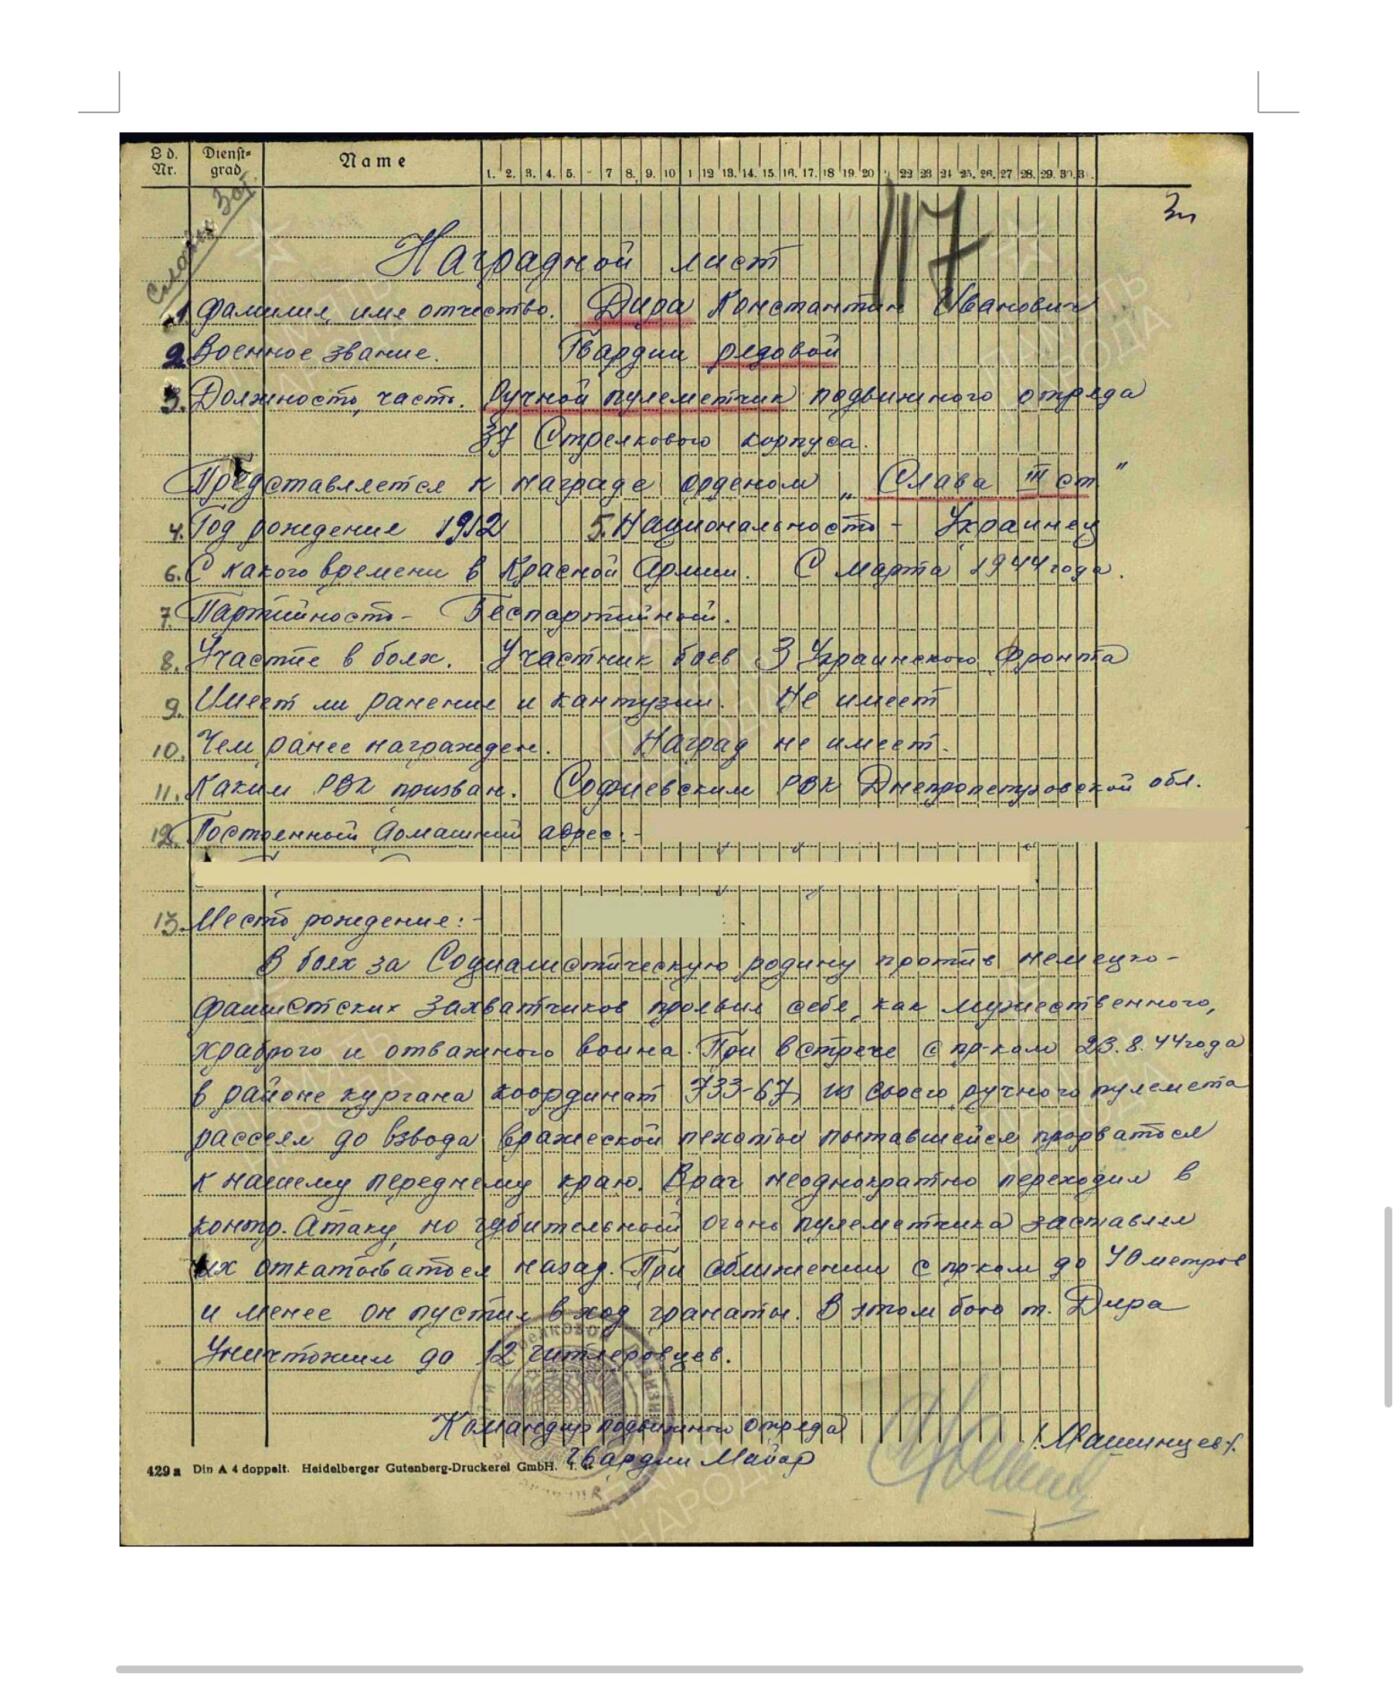 Ld. Nr.
Dienst-grad
Name
1. 2. 3. 4. 5. 7 8. 9. 10 1 12 13. 14. 15. 16. 17. 18 19. 20 22 23 24 25. 26. 27 28. 29. 30. 3
117
Наградной лист
1 Фамилия, имя отчество. Дира Константин Иванович
2 Военное звание. Гвардии рядовой
3. Должность, часть. Ручной пулеметчик подвижного отряда
37 Стрелкового корпуса.
Представляется к награде орденом „Слава III ст"
4. Год рождение 1912 5. Национальность - Украинец
6. С какого времени в Красной Армии. С марта 1944 года.
7. Партийность - Беспартийной.
8. Участие в боях. Участник боев 3 Украинского Фронта
9. Имеет ли ранение и кантузии. Не имеет
10. Чем ранее награжден. Наград не имеет.
11. Каким РВК призван. Софиевским РВК Днепропетровской обл.
12. Постоенный домашний адрес:-
13. Место рождение:-
В боях за Социалистическую родину против немецко-
фашистских захватчиков проявил себя, как мужественного,
храброго и отважного воина. При встрече с пр-ком 23.8.44 года
в районе кургана координат 733-67, из своего ручного пулемета
рассеял до взвода вражеской пехоты пытавшейся прорваться
к нашему переднему краю. Враг неоднократно переходил в
контр. Атаку, но губительный огонь пулеметчика заставлял
их откатываться назад. При сближении с пр-ком до 40 метров
и менее он пустил в ход гранаты. В этом бою т. Дира
Уничтожил до 12 гитлеровцев.
Командир подвижного отряда
Гвардии Майор /Машинцев/.
429a Din A 4 doppelt. Heidelberger Gutenberg-Druckerei GmbH.
ПАМЯТЬ НАРОДА